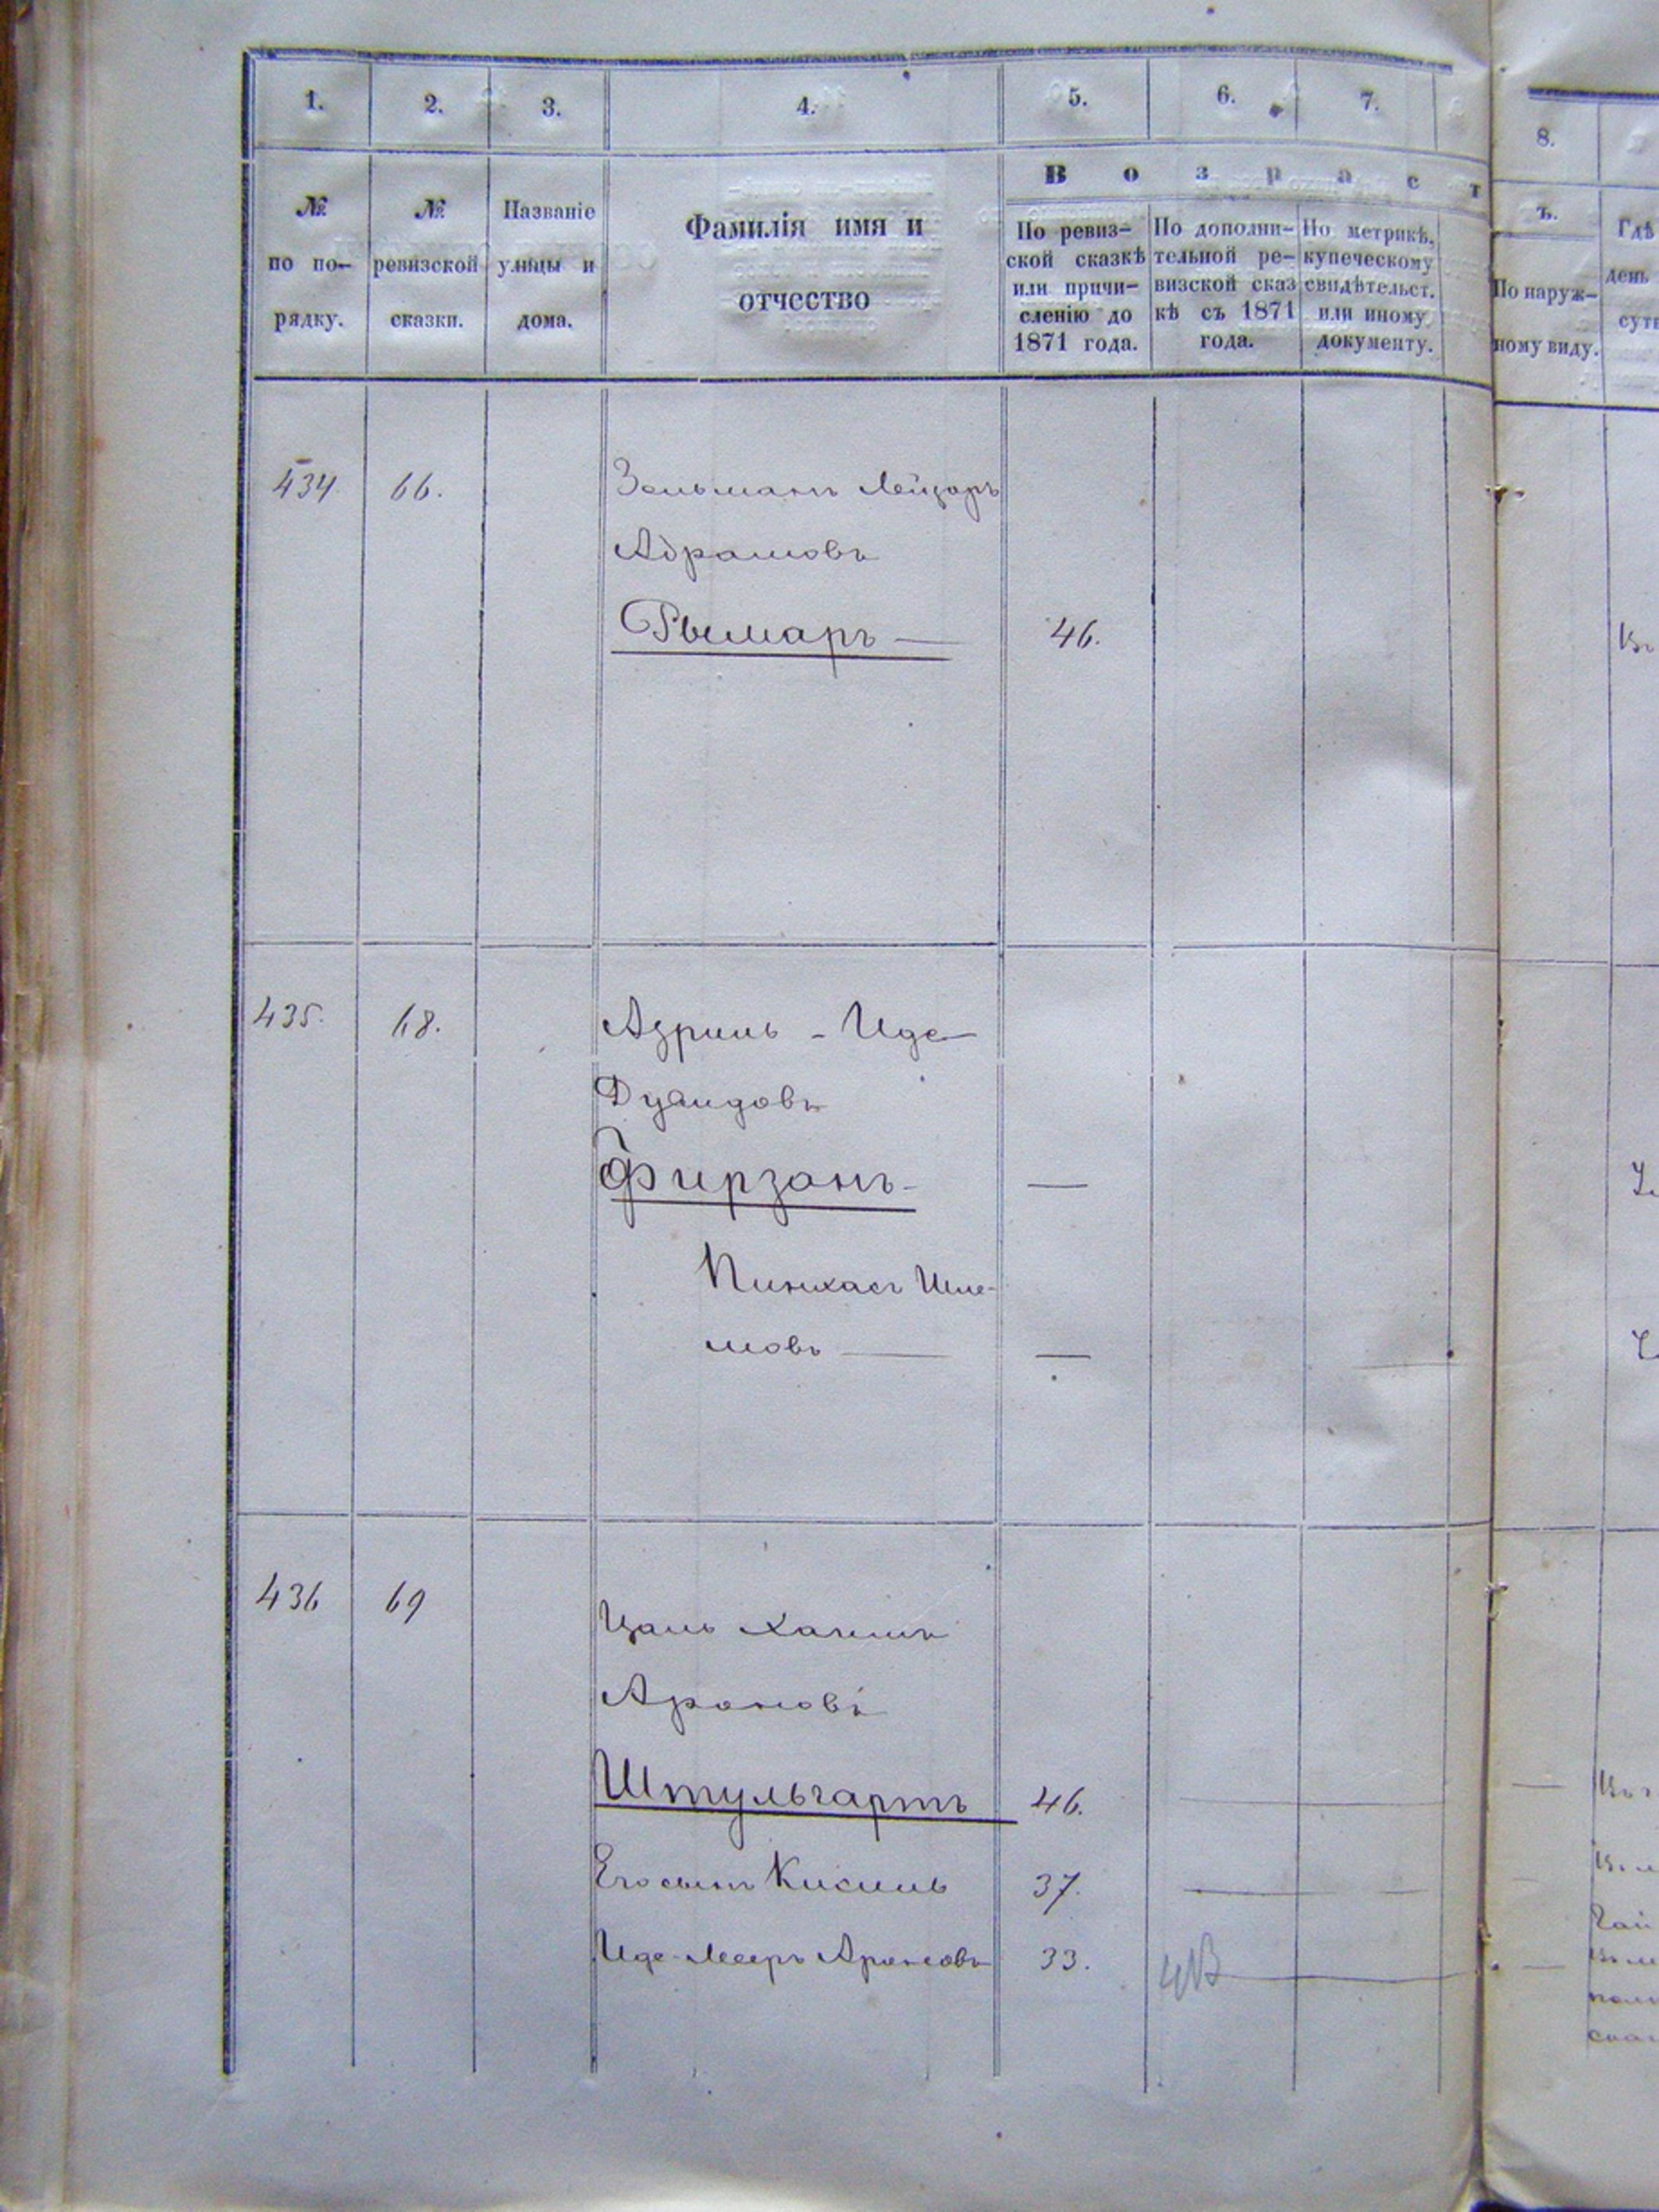 1.
2.
3.
4.
5.
6.
7.
8.
В о з р а с т
ъ.
№ по по-
рядку.
№ ревизской
сказки.
Названіе
улицы и
дома.
Фамилія имя и
отчество
По ревиз-
ской сказкѣ
или причи-
сленію до
1871 года.
По дополни-
тельной ре-
визской сказ
кѣ съ 1871
года.
По метрикѣ,
купеческому
свидѣтельст.
или иному
документу.
По наруж-
ному виду.
Гдѣ
день
434 66. Зельманъ Лейзоръ
Абрамовъ
Рымаръ — 46.
435. 68. Азриль - Иде
Дувидовъ
Фирзонъ - —
Пинхасъ Шле-
мовъ — —
436 69 Цаль Хаимъ
Ароновъ
Штульгартъ 46.
Его сынъ Кисиль 37.
Иде-Меер​ъ Ароновъ 33.